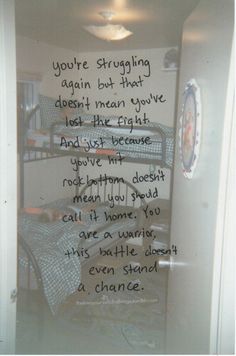 you're struggling
again but that
doesn't mean you've
lost the fight.
And just because
you've hit
rockbottom doesn't
mean you should
call it home. You
are a warrior,
this battle doesn't
even stand
a chance.